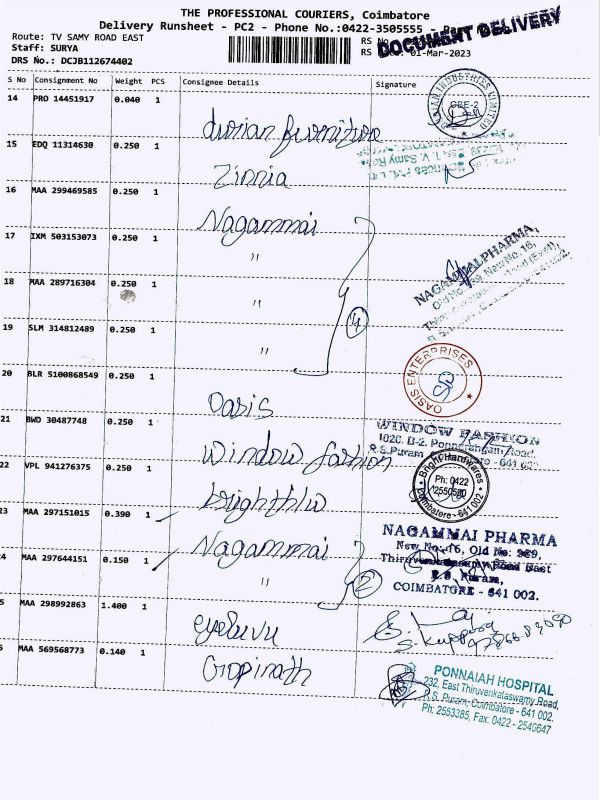 THE PROFESSIONAL COURIERS, Coimbatore
Delivery Runsheet - PC2 - Phone No.:0422-3505555
Route: TV SAMY ROAD EAST
RS No
Staff: SURYA
RS
01-Mar-2023
DRS No.: DCJB112674402
DOCUMENT DELIVERY
S No Consignment No Weight PCS Consignee Details Signature
14 PRO 14451917 0.040 1 durian furniture
INDUSTRIES LIMITED
CBE-2
15 EDQ 11314630 0.250 1 Zinnia
16 MAA 299469585 0.250 1 Nagammai
17 IXM 503153073 0.250 1 "
NAGAMMAI PHARMA,
18 MAA 289716304 0.250 1 "
4
19 SLM 314812489 0.250 1 "
20 BLR 5100868549 0.250 1 Oasis
OASIS ENTERPRISES
21 BWD 30487748 0.250 1 window fashion
WINDOW FASHION
102C, B-2, Ponnurangam Road,
R.S.Puram
22 VPL 941276375 0.250 1 brighthw
Bright Hardwares
Ph: 0422
2550580
Coimbatore - 641 002
23 MAA 297151015 0.390 1 Nagammai
4 MAA 297644151 0.150 1 "
2
NAGAMMAI PHARMA
New No: 16, Old No: 989,
Thiruvenkatasamy Road East
R.S. Puram,
COIMBATORE - 641 002.
5 MAA 298992863 1.400 1
MAA 569568773 0.140 1 Gopinath
PONNAIAH HOSPITAL
232, East Thiruvenkataswamy Road,
R.S. Puram, Coimbatore - 641 002.
Ph: 2553385, Fax: 0422 - 2540647